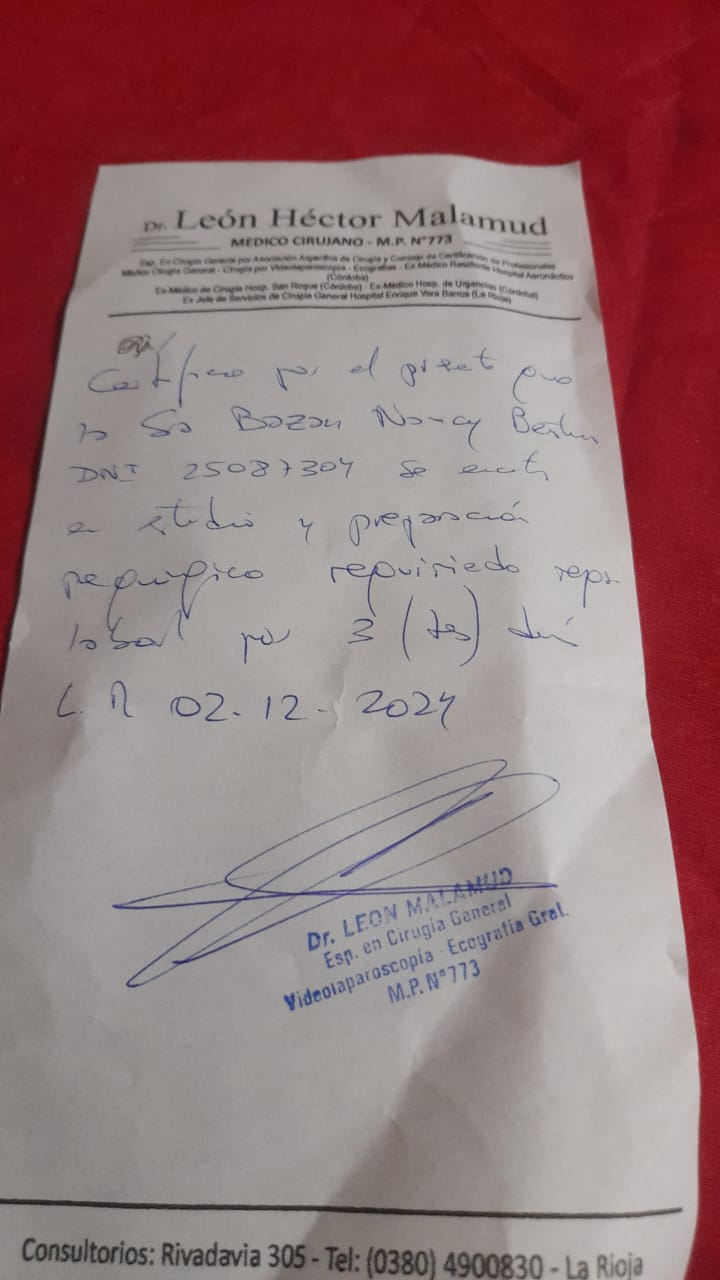 Dr. León Héctor Malamud
MEDICO CIRUJANO - M.P. N°773
Esp. En Cirugía General por Asociación Argentina de Cirugía y Consejo de Certificación de Profesionales
Médico Cirugía General - Cirugía por Videolaparoscopia - Ecografías - Ex-Médico Residente Hospital Aeronáutico
(Córdoba)
Ex-Médico de Cirugía Hosp. San Roque (Córdoba) - Ex-Médico Hosp. de Urgencias (Córdoba)
Ex Jefe de Servicios de Cirugía General Hospital Enrique Vera Barros (La Rioja)
Certifico por el que
la Sa Bazan Nancy
DNI 25087304 se
en estudio y preparación
requiriendo
por 3 (tres)
L.R 02-12-2024
Dr. LEON MALAMUD
Esp. en Cirugía General
Videolaparoscopía - Ecografía Gral.
M.P. N°773
Consultorios: Rivadavia 305 - Tel: (0380) 4900830 - La Rioja